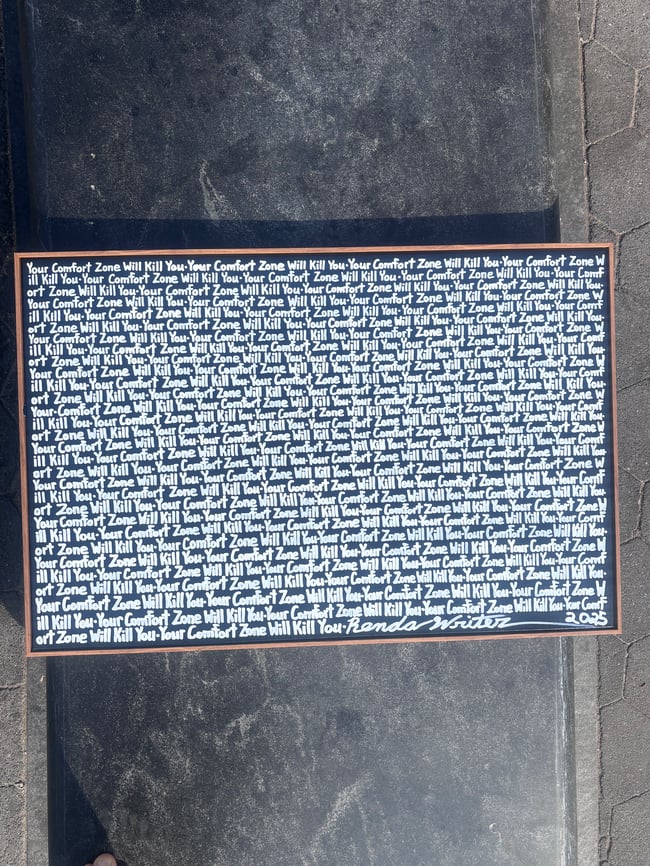 Your Comfort Zone Will Kill You·Your Comfort Zone Will Kill You·Your Comfort Zone Will Kill You·Your Comfort Zone W
ill Kill You·Your Comfort Zone Will Kill You·Your Comfort Zone Will Kill You·Your Comfort Zone Will Kill You·Your Comf
ort Zone Will Kill You·Your Comfort Zone Will Kill You·Your Comfort Zone Will Kill You·Your Comfort Zone Will Kill You·
Your Comfort Zone Will Kill You·Your Comfort Zone Will Kill You·Your Comfort Zone Will Kill You·Your Comfort Zone W
ill Kill You·Your Comfort Zone Will Kill You·Your Comfort Zone Will Kill You·Your Comfort Zone Will Kill You·Your Comf
ort Zone Will Kill You·Your Comfort Zone Will Kill You·Your Comfort Zone Will Kill You·Your Comfort Zone Will Kill You·
Your Comfort Zone Will Kill You·Your Comfort Zone Will Kill You·Your Comfort Zone Will Kill You·Your Comfort Zone W
ill Kill You·Your Comfort Zone Will Kill You·Your Comfort Zone Will Kill You·Your Comfort Zone Will Kill You·Your Comf
ort Zone Will Kill You·Your Comfort Zone Will Kill You·Your Comfort Zone Will Kill You·Your Comfort Zone Will Kill You·
Your Comfort Zone Will Kill You·Your Comfort Zone Will Kill You·Your Comfort Zone Will Kill You·Your Comfort Zone W
ill Kill You·Your Comfort Zone Will Kill You·Your Comfort Zone Will Kill You·Your Comfort Zone Will Kill You·Your Comf
ort Zone Will Kill You·Your Comfort Zone Will Kill You·Your Comfort Zone Will Kill You·Your Comfort Zone Will Kill You·
Your Comfort Zone Will Kill You·Your Comfort Zone Will Kill You·Your Comfort Zone Will Kill You·Your Comfort Zone W
ill Kill You·Your Comfort Zone Will Kill You·Your Comfort Zone Will Kill You·Your Comfort Zone Will Kill You·Your Comf
ort Zone Will Kill You·Your Comfort Zone Will Kill You·Your Comfort Zone Will Kill You·Your Comfort Zone Will Kill You·
Your Comfort Zone Will Kill You·Your Comfort Zone Will Kill You·Your Comfort Zone Will Kill You·Your Comfort Zone W
ill Kill You·Your Comfort Zone Will Kill You·Your Comfort Zone Will Kill You·Your Comfort Zone Will Kill You·Your Comf
ort Zone Will Kill You·Your Comfort Zone Will Kill You·Your Comfort Zone Will Kill You·Your Comfort Zone Will Kill You·
Your Comfort Zone Will Kill You·Your Comfort Zone Will Kill You·Your Comfort Zone Will Kill You·Your Comfort Zone W
ill Kill You·Your Comfort Zone Will Kill You·Your Comfort Zone Will Kill You·Your Comfort Zone Will Kill You·Your Comf
ort Zone Will Kill You·Your Comfort Zone Will Kill You·Your Comfort Zone Will Kill You·Your Comfort Zone Will Kill You·
Your Comfort Zone Will Kill You·Your Comfort Zone Will Kill You·Your Comfort Zone Will Kill You·Your Comfort Zone W
ill Kill You·Your Comfort Zone Will Kill You·Your Comfort Zone Will Kill You·Your Comfort Zone Will Kill You·Your Comf
ort Zone Will Kill You·Your Comfort Zone Will Kill You·Your Comfort Zone Will Kill You·Your Comfort Zone Will Kill You·
Your Comfort Zone Will Kill You·Your Comfort Zone Will Kill You·Your Comfort Zone Will Kill You·Your Comfort Zone W
ill Kill You·Your Comfort Zone Will Kill You·Your Comfort Zone Will Kill You·Your Comfort Zone Will Kill You·Your Comf
ort Zone Will Kill You·Your Comfort Zone Will Kill You·Your Comfort Zone Will Kill You·Your Comfort Zone Will Kill You·
Your Comfort Zone Will Kill You·Your Comfort Zone Will Kill You·Your Comfort Zone Will Kill You·Your Comfort Zone W
ill Kill You·Your Comfort Zone Will Kill You·Your Comfort Zone Will Kill You·Your Comfort Zone Will Kill You·Your Comf
ort Zone Will Kill You·Your Comfort Zone Will Kill You·Renda Writer 2025